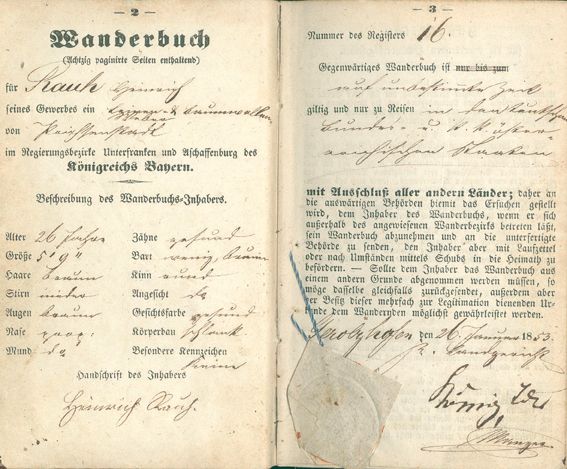 — 2 —
Wanderbuch
(Achtzig paginirte Seiten enthaltend)
für Rauh Heinrich
seines Gewerbes ein
von Prichsenstadt
im Regierungsbezirke Unterfranken und Aschaffenburg des
Königreichs Bayern.
Beschreibung des Wanderbuchs-Inhabers.
Alter 26 Jahre Zähne gesund
Größe 5' 9" Bart wenig, braun
Haare braun Kinn rund
Stirn nieder Angesicht do
Augen braun Gesichtsfarbe gesund
Nase prop. Körperbau schlank
Mund do Besondere Kennzeichen
keine
Handschrift des Inhabers
Heinrich Rauh.
— 3 —
Nummer des Registers 16.
Gegenwärtiges Wanderbuch ist nur bis zum
auf unbestimmte Zeit
giltig und nur zu Reisen in den deutschen
Bundes- u. k. k. öster-
reichischen Staaten
mit Ausschluß aller andern Länder; daher an
die auswärtigen Behörden hiemit das Ersuchen gestellt
wird, dem Inhaber des Wanderbuchs, wenn er sich
außerhalb des angewiesenen Wanderbezirks betreten läßt,
sein Wanderbuch abzunehmen und an die unterfertigte
Behörde zu senden, den Inhaber aber mit Laufzettel
oder nach Umständen mittels Schubs in die Heimath zu
befördern. — Sollte dem Inhaber das Wanderbuch aus
einem andern Grunde abgenommen werden müssen, so
möge dasselbe gleichfalls zurückgesendet, außerdem aber
der Besitz dieser mehrfach zur Legitimation dienenden Ur-
kunde dem Wandernden möglichst gewährleistet werden.
Gerolzhofen den 26 Januar 1853.
K. Landgericht
König